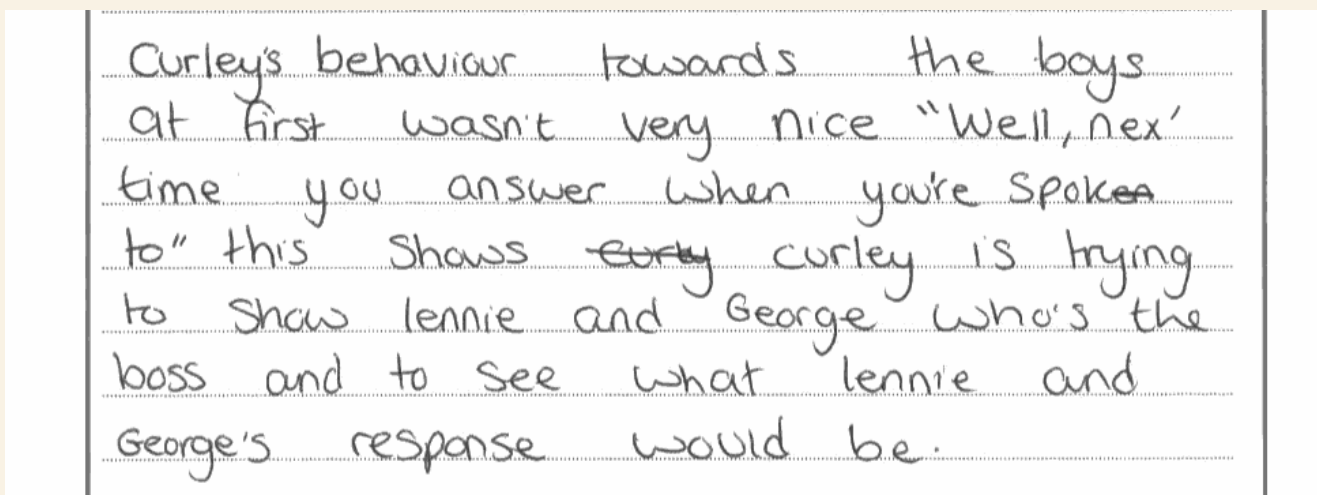 Curley's behaviour towards the boys
at first wasn't very nice "Well, nex'
time you answer when you're spoken
to" this shows curley is trying
to show lennie and George who's the
boss and to see what lennie and
George's response would be.